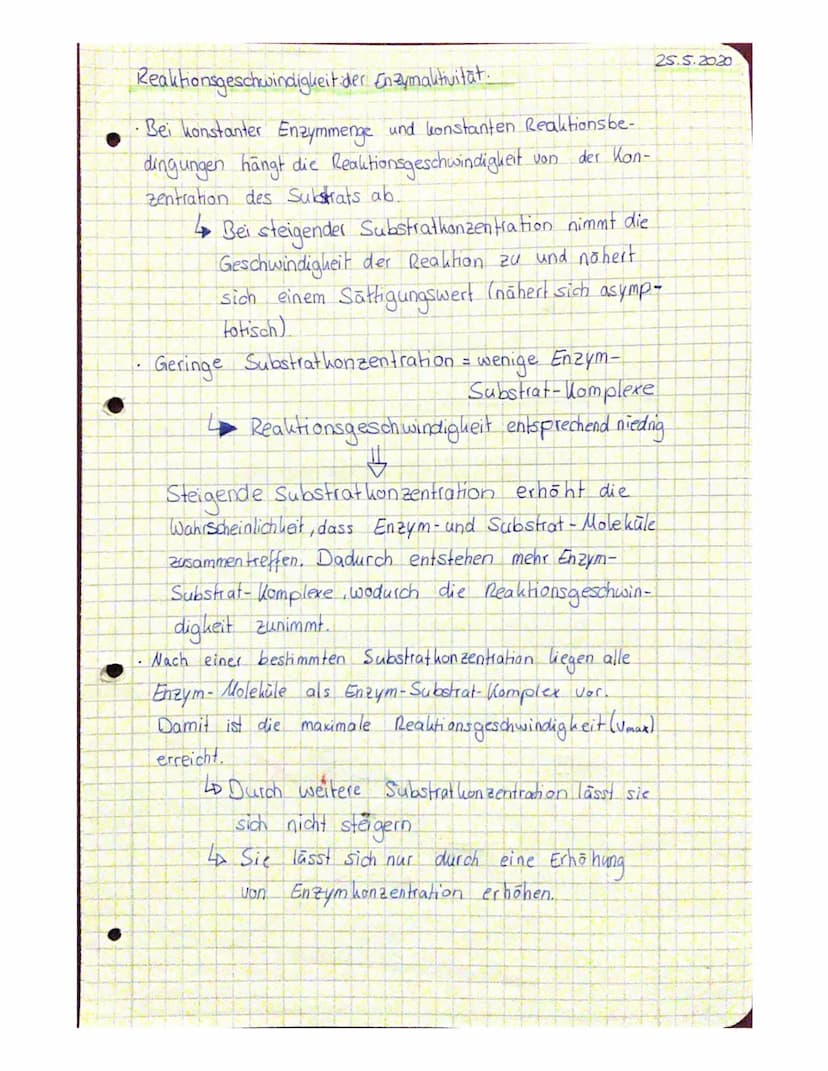 25.5.2020
Reaktionsgeschwindigkeit der Enzymaktivität.
· Bei konstanter Enzymmenge und konstanten Reaktionsbe-
dingungen hängt die Reaktionsgeschwindigkeit von der Kon-
zentration des Substrats ab.
↳ Bei steigender Substratkonzentration nimmt die
Geschwindigkeit der Reaktion zu und nähert
sich einem Sättigungswert (nähert sich asymp-
totisch)
· Geringe Substratkonzentration = wenige Enzym-
Substrat-Komplexe
↳ Reaktionsgeschwindigkeit entsprechend niedrig
⇓
Steigende Substratkonzentration erhöht die
Wahrscheinlichkeit, dass Enzym- und Substrat-Moleküle
zusammentreffen. Dadurch entstehen mehr Enzym-
Substrat-Komplexe, wodurch die Reaktionsgeschwin-
digkeit zunimmt.
· Nach einer bestimmten Substratkonzentration liegen alle
Enzym-Moleküle als Enzym-Substrat-Komplex vor.
Damit ist die maximale Reaktionsgeschwindigkeit (Vmax)
erreicht.
↳ Durch weitere Substratkonzentration lässt sie
sich nicht steigern
↳ Sie lässt sich nur durch eine Erhöhung
von Enzymkonzentration erhöhen.